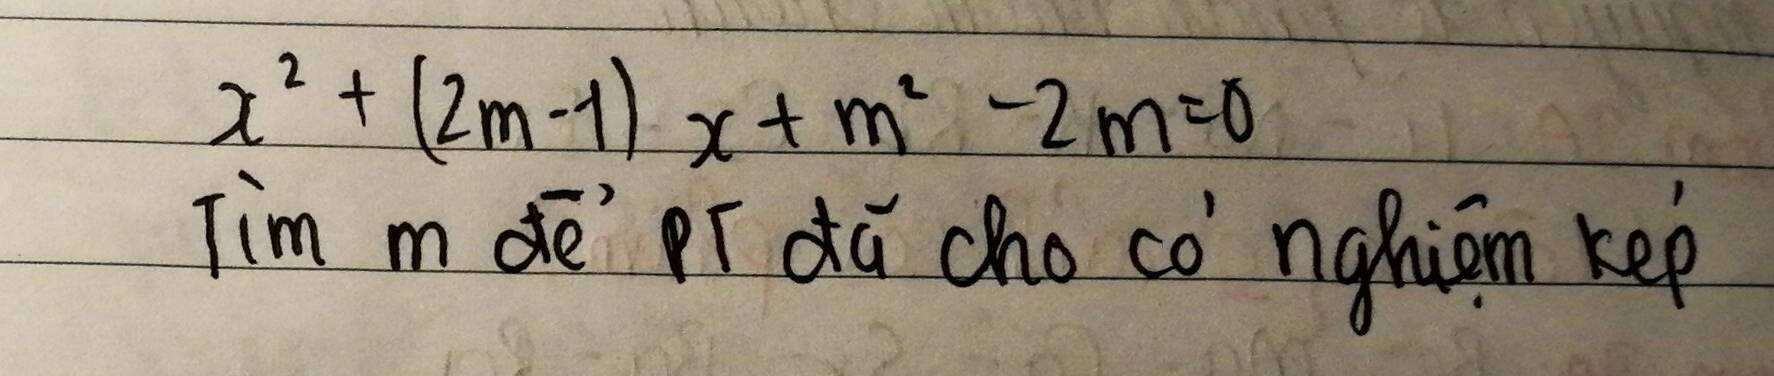 x² + (2m-1) x + m² - 2m = 0
Tìm m để PT đã cho có nghiệm kép